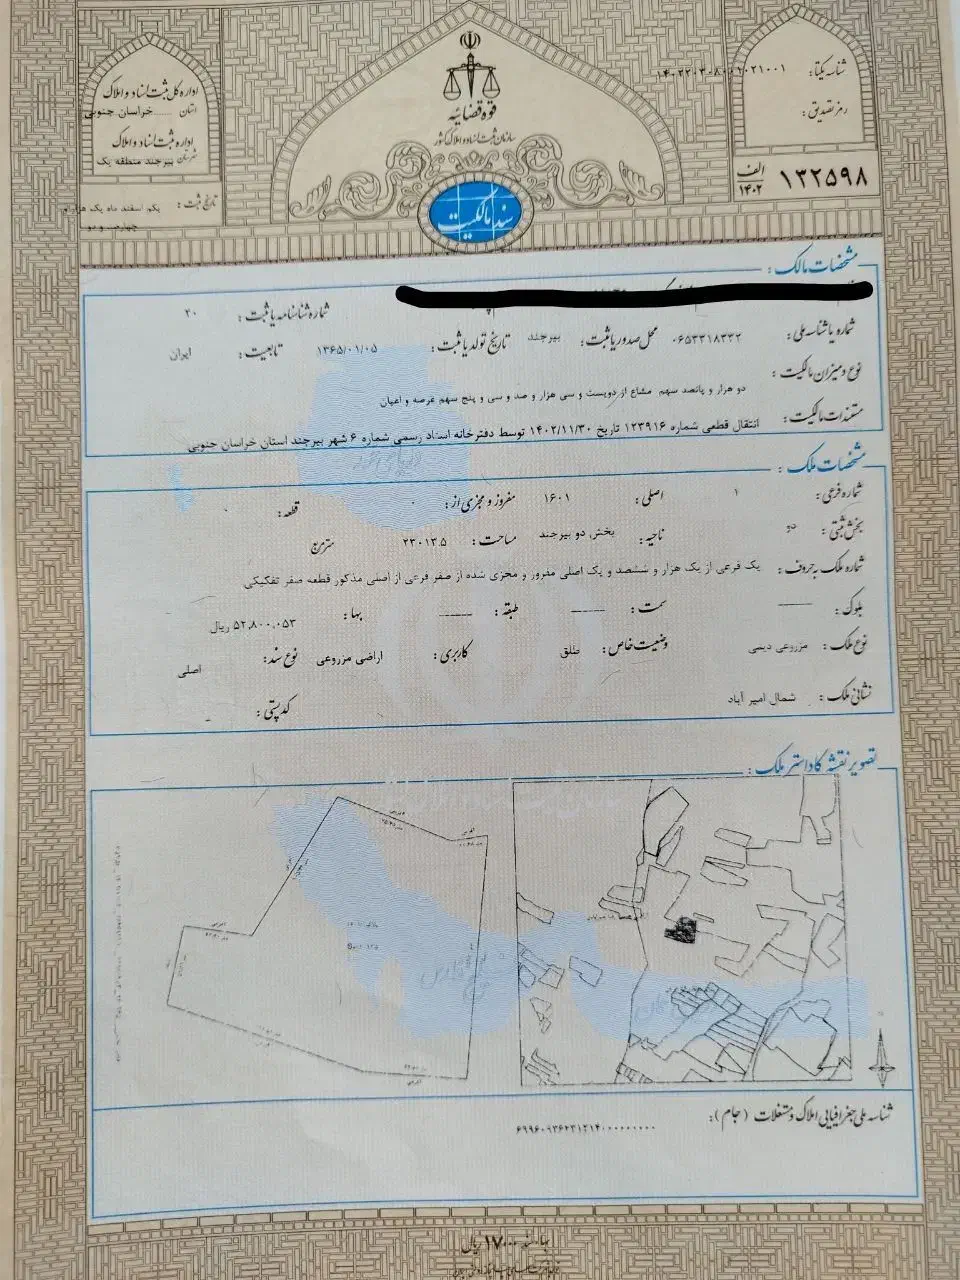 اداره کل ثبت اسناد و املاک
استان خراسان جنوبی
اداره ثبت اسناد و املاک
شهرستان بیرجند منطقه یک
تاریخ ثبت: یکم اسفند ماه یک هزار و
چهارصد و دو
قوه قضائیه
سازمان ثبت اسناد و املاک کشور
سند مالکیت
شناسه یکتا:
رمز تصدیق:
۱۳۲۵۹۸ الف ۱۴۰۲
مشخصات مالک:
شماره شناسنامه یا ثبت: ۲۰
شماره یا شناسه ملی: ۰۶۵۳۳۱۸۳۳۲ محل صدور یا ثبت: بیرجند تاریخ تولد یا ثبت: ۱۳۶۵/۰۱/۰۵ تابعیت: ایران
نوع و میزان مالکیت:
دو هزار و پانصد سهم مشاع از دویست و سی هزار و صد و سی و پنج سهم عرصه و اعیان
مستندات مالکیت: انتقال قطعی شماره ۱۲۳۹۱۶ تاریخ ۱۴۰۲/۱۱/۳۰ توسط دفترخانه اسناد رسمی شماره ۶ شهر بیرجند استان خراسان جنوبی
دریای خزر
مشخصات ملک:
شماره فرعی: ۱ اصلی: ۱۶۰۱ مفروز و مجزی از: ۰ قطعه:
بخش ثبتی: دو ناحیه: بخش دو بیرجند مساحت: ۲۳۰۱۳.۵ مترمربع
شماره ملک به حروف: یک فرعی از یک هزار و ششصد و یک اصلی مفروز و مجزی شده از صفر فرعی از اصلی مذکور قطعه صفر تفکیکی
بلوک: ــــ سمت: ــــ طبقه: ــــ بها: ۵۲,۸۰۰,۰۵۳ ریال
نوع ملک: مزروعی دیمی وضعیت خاص: طلق کاربری: اراضی مزروعی نوع سند: اصلی
نشانی ملک: شمال امیر آباد کدپستی: -
تصویر نقشه کاداستر ملک:
خلیج فارس
شناسه ملی جغرافیایی املاک و مستغلات (جام):